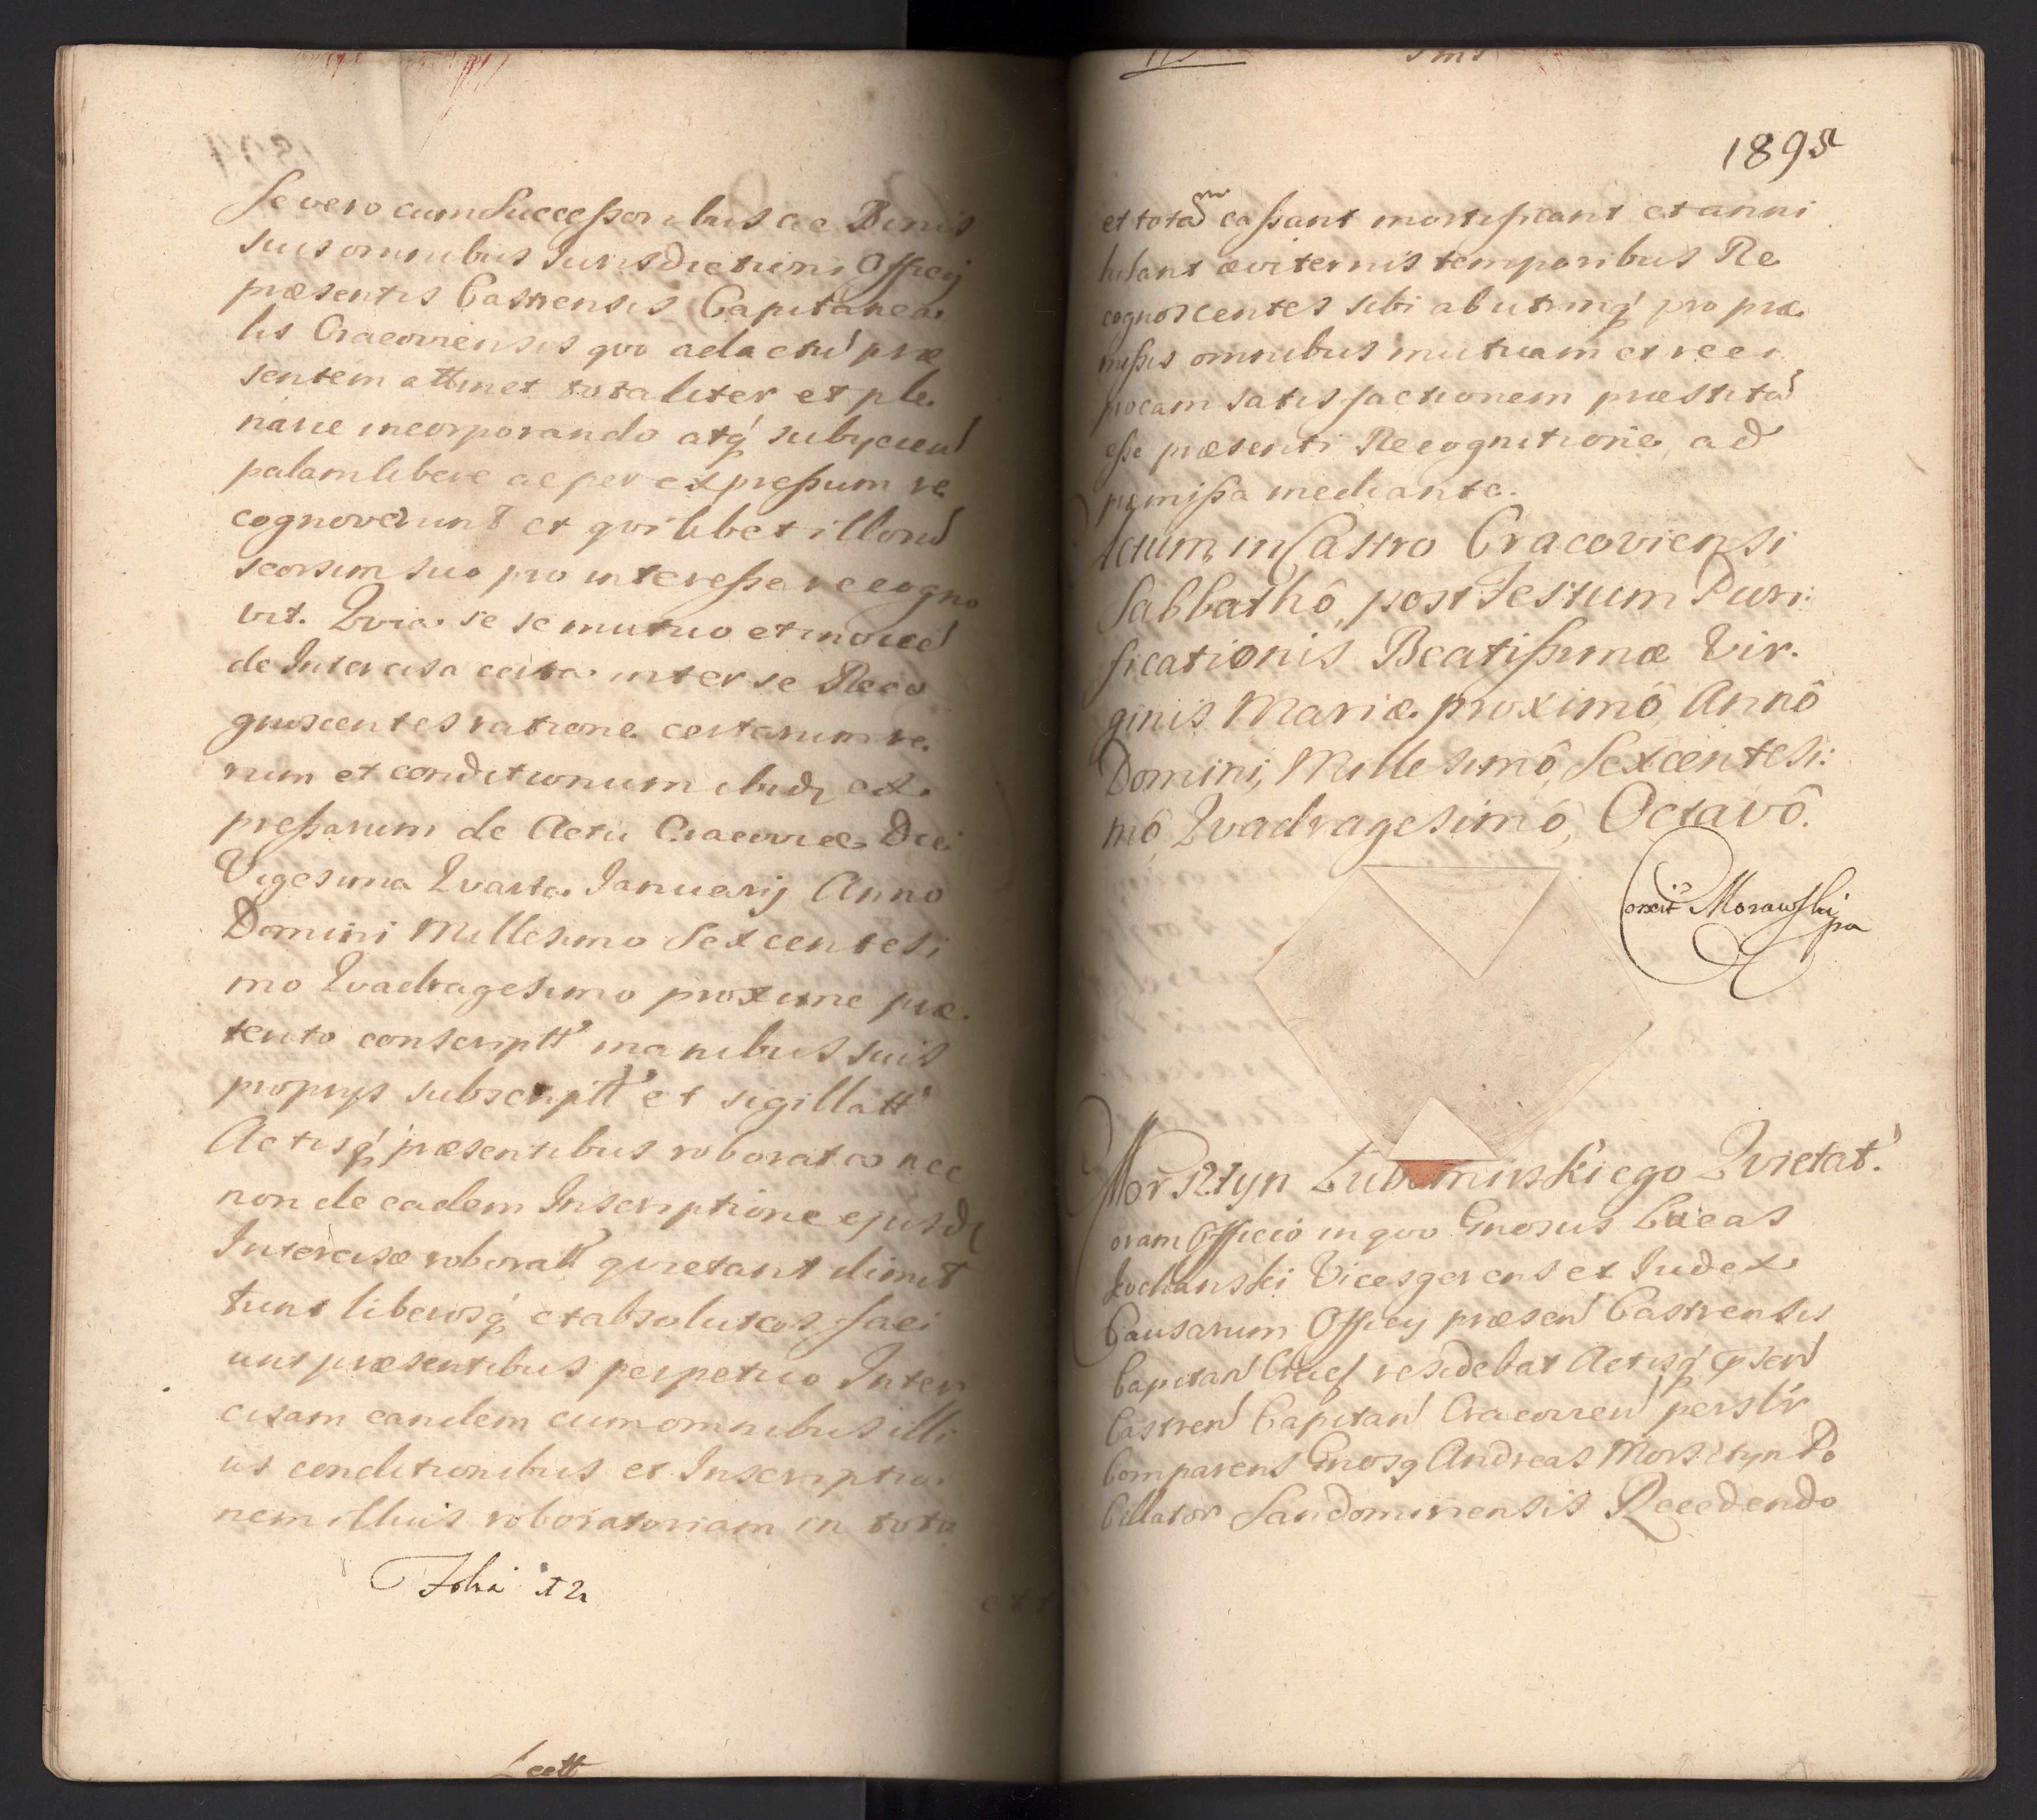 se vero cum Successoribus ac Bonis
suis omnibus Iurisdictioni Officij
præsentis Castrensis Capitanea
lis Cracoviensis qvo ad actu præ
sentem attinet totaliter et ple
narie incorporando atq subycien
palam libere ac per expressum re
cognoverunt et qvilibet illoru
seorsim suo pro interesse recogno
vit. Qvia se se mutuo et invice
de Intercisa certa inter se Reco
gnoscentes ratione certarum re
rum et conditionum ibid ex
pressarum de Actu Cracoviæ Die
Vigesima Qvarta Ianuarij Anno
Domini Millesimo Sexcentesi
mo Qvadragesimo proxime præ
terito conscriptt manibus suis
proprijs subscriptt et sigillatt
Actisq præsentibus roborat nec
non de eadem Inscriptione ejusd
Intercisæ roboratt qvietant dimit
tunt liberosq et absolutos faci
unt præsentibus perpetuo Inter
cisam eandem cum omnibus illi
us conditionibus et Inscriptio
nem illius roboratoriam in toto
Folia
1895
et tota cassant mortificant et anni
hilant æviternis temporibus Re
cognoscentes sibi ab utrinq pro præ
missis omnibus mutuam et reci
procam satisfactionem præstita
esse præsenti Recognitione ad
pmissa mediante.
Actum in Castro Cracoviensi
Sabbathô post Festum Puri:
ficationis Beatissimæ Vir.
ginis Mariæ proximô Annô
Domini, Millesimô, Sexcentesi:
mô, Qvadragesimô, Octavô.
Morawski
Morsztyn Lubomirskiego Qvietat.
Coram Officio in qvo Gnosus Lucas
Kochanski Vicesgerens et Iudex
Causarum Officij præsen Castrensis
Capitan residebat Actisq
Castren Capitan Cracovien
Comparens Gnosq Andreas Morsztyn Po
cillator Sandomiriensis Recedendo